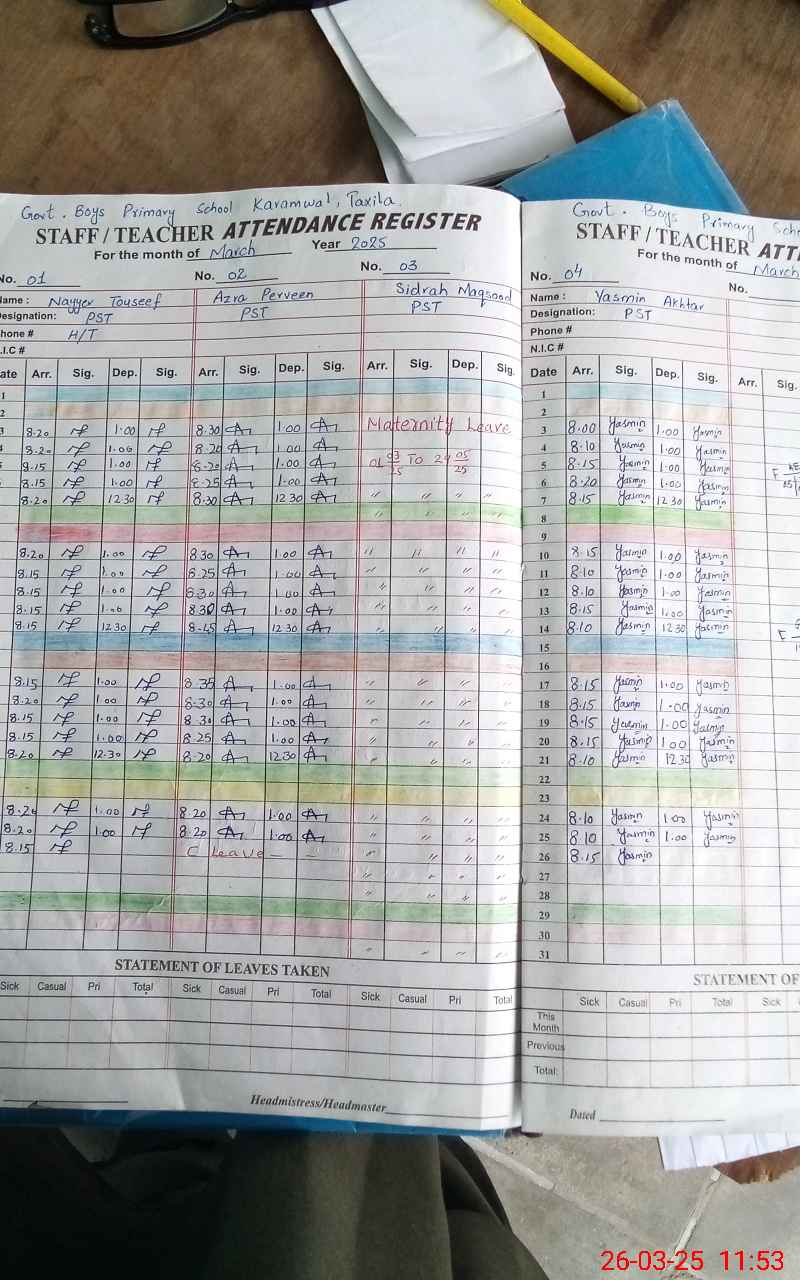 Govt. Boys Primary School Karamwal, Taxila.
STAFF / TEACHER ATTENDANCE REGISTER
For the month of March Year 2025
No. 01 No. 02 No. 03
Name: Nayyer Touseef Azra Perveen Sidrah Maqsood
Designation: PST PST PST
Phone # H/T
N.I.C #
Date Arr. Sig. Dep. Sig. Arr. Sig. Dep. Sig. Arr. Sig. Dep. Sig.
1
2
3 8.20 1.00 8.30 1.00 Maternity Leave
4 8.20 1.00 8.20 1.00
5 8.15 1.00 8.20 1.00 03/25 To 05/25
6 8.15 1.00 8.25 1.00
8.20 12.30 8.30 12.30 " " " "
" " "
8.20 1.00 8.30 1.00 " " " "
8.15 1.00 8.25 1.00 " " " "
8.15 1.00 8.30 1.00 " " " "
8.15 1.00 8.30 1.00 " " " "
8.15 12.30 8.45 12.30 " " " "
8.15 1.00 8.35 1.00 " " " "
8.20 1.00 8.30 1.00 " " " "
8.15 1.00 8.30 1.00 " " " "
8.15 1.00 8.25 1.00 " " "
8.20 12.30 8.20 12.30 " " " "
8.20 1.00 8.20 1.00 " " " "
8.20 1.00 8.20 1.00 " " " "
8.15 C Leave – – " " " "
" " " "
" " " "
" " " "
STATEMENT OF LEAVES TAKEN
Sick Casual Pri Total Sick Casual Pri Total Sick Casual Pri Total
Headmistress/Headmaster
Govt. Boys Primary
STAFF / TEACHER
For the month of March
No. 04 No.
Name: Yasmin Akhtar
Designation: PST
Phone #
N.I.C #
Date Arr. Sig. Dep. Sig. Arr. Sig.
1
2
3 8.00 Yasmin 1.00 Yasmin
4 8.10 Yasmin 1.00 Yasmin
5 8.15 Yasmin 1.00 Yasmin
6 8.20 Yasmin 1.00 Yasmin
7 8.15 Yasmin 12 30 Yasmin
8
9
10 8.15 Yasmin 1.00 Yasmin
11 8.10 Yasmin 1.00 Yasmin
12 8.10 Yasmin 1.00 Yasmin
13 8.15 Yasmin 1.00 Yasmin
14 8.10 Yasmin 12 30 Yasmin
15
16
17 8.15 Yasmin 1.00 Yasmin
18 8.15 Yasmin 1.00 Yasmin
19 8.15 Yasmin 1.00 Yasmin
20 8.15 Yasmin 1.00 Yasmin
21 8.10 Yasmin 12 30 Yasmin
22
23
24 8.10 Yasmin 1.00 Yasmin
25 8.10 Yasmin 1.00 Yasmin
26 8.15 Yasmin
27
28
29
30
31
STATEMENT OF
Sick Casual Pri Total Sick
This Month
Previous
Total:
Dated
26-03-25 11:53